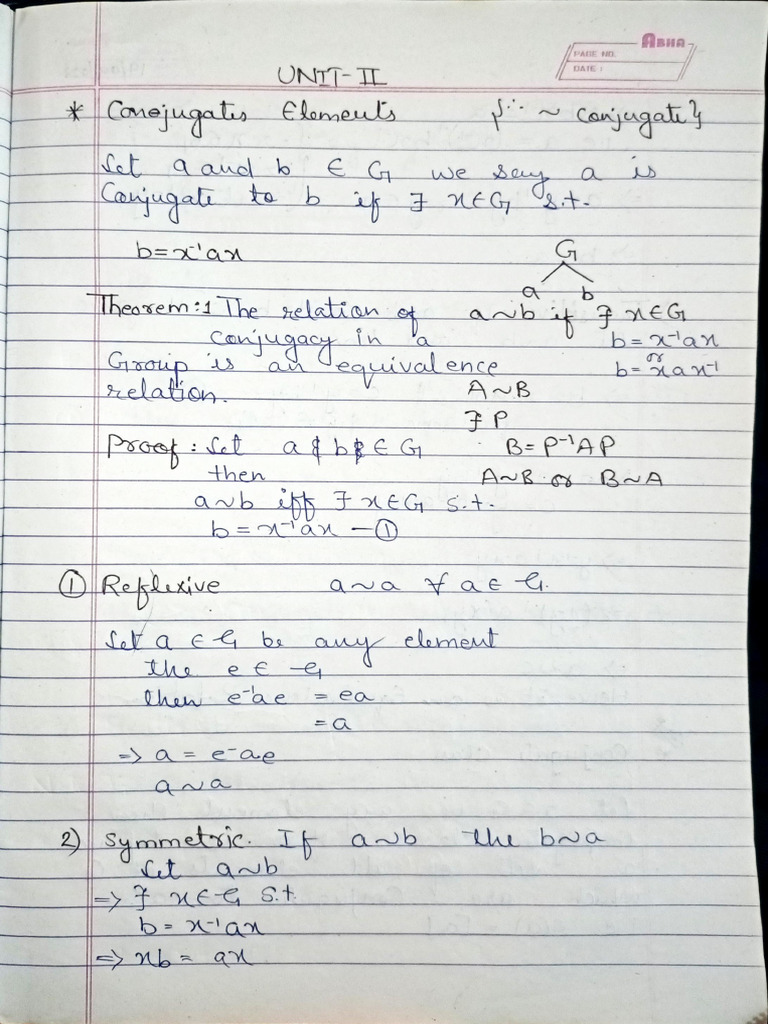 ABHA
PAGE NO.
DATE :
UNIT-II
* Conojugates Elements {∵ ~ conjugate}
Let a and b ∈ G we say a is
Conjugate to b if ∃ x∈G s.t.
b=x⁻¹ax
G
a b
Theorem:1 The relation of a~b if ∃ x∈G
conjugacy in a b=x⁻¹ax
or
Group is an equivalence b=xax⁻¹
relation. A~B
∃ P
Proof: Let a & b ∈ G B=P⁻¹AP
then A~B or B~A
a~b iff ∃ x∈G s.t.
b=x⁻¹ax —①
① Reflexive a~a ∀ a∈G.
Let a ∈ G be any element
the e ∈ G
then e⁻¹ae = ea
= a
⇒ a = e⁻ae
a~a
2) Symmetric. If a~b the b~a
Let a~b
⇒ ∃ x∈G s.t.
b = x⁻¹ax
⇒ xb = ax